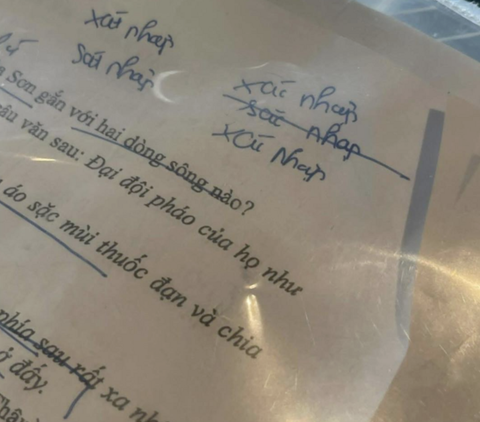 xát nhập
Sát nhập
xác nhập
sác nhập
xát nhập
Sơn gắn với hai dòng sông nào?
câu văn sau: Đại đội pháo của họ như
áo sặc mùi thuốc đạn và chia
phía sau rất xa
ở đấy.